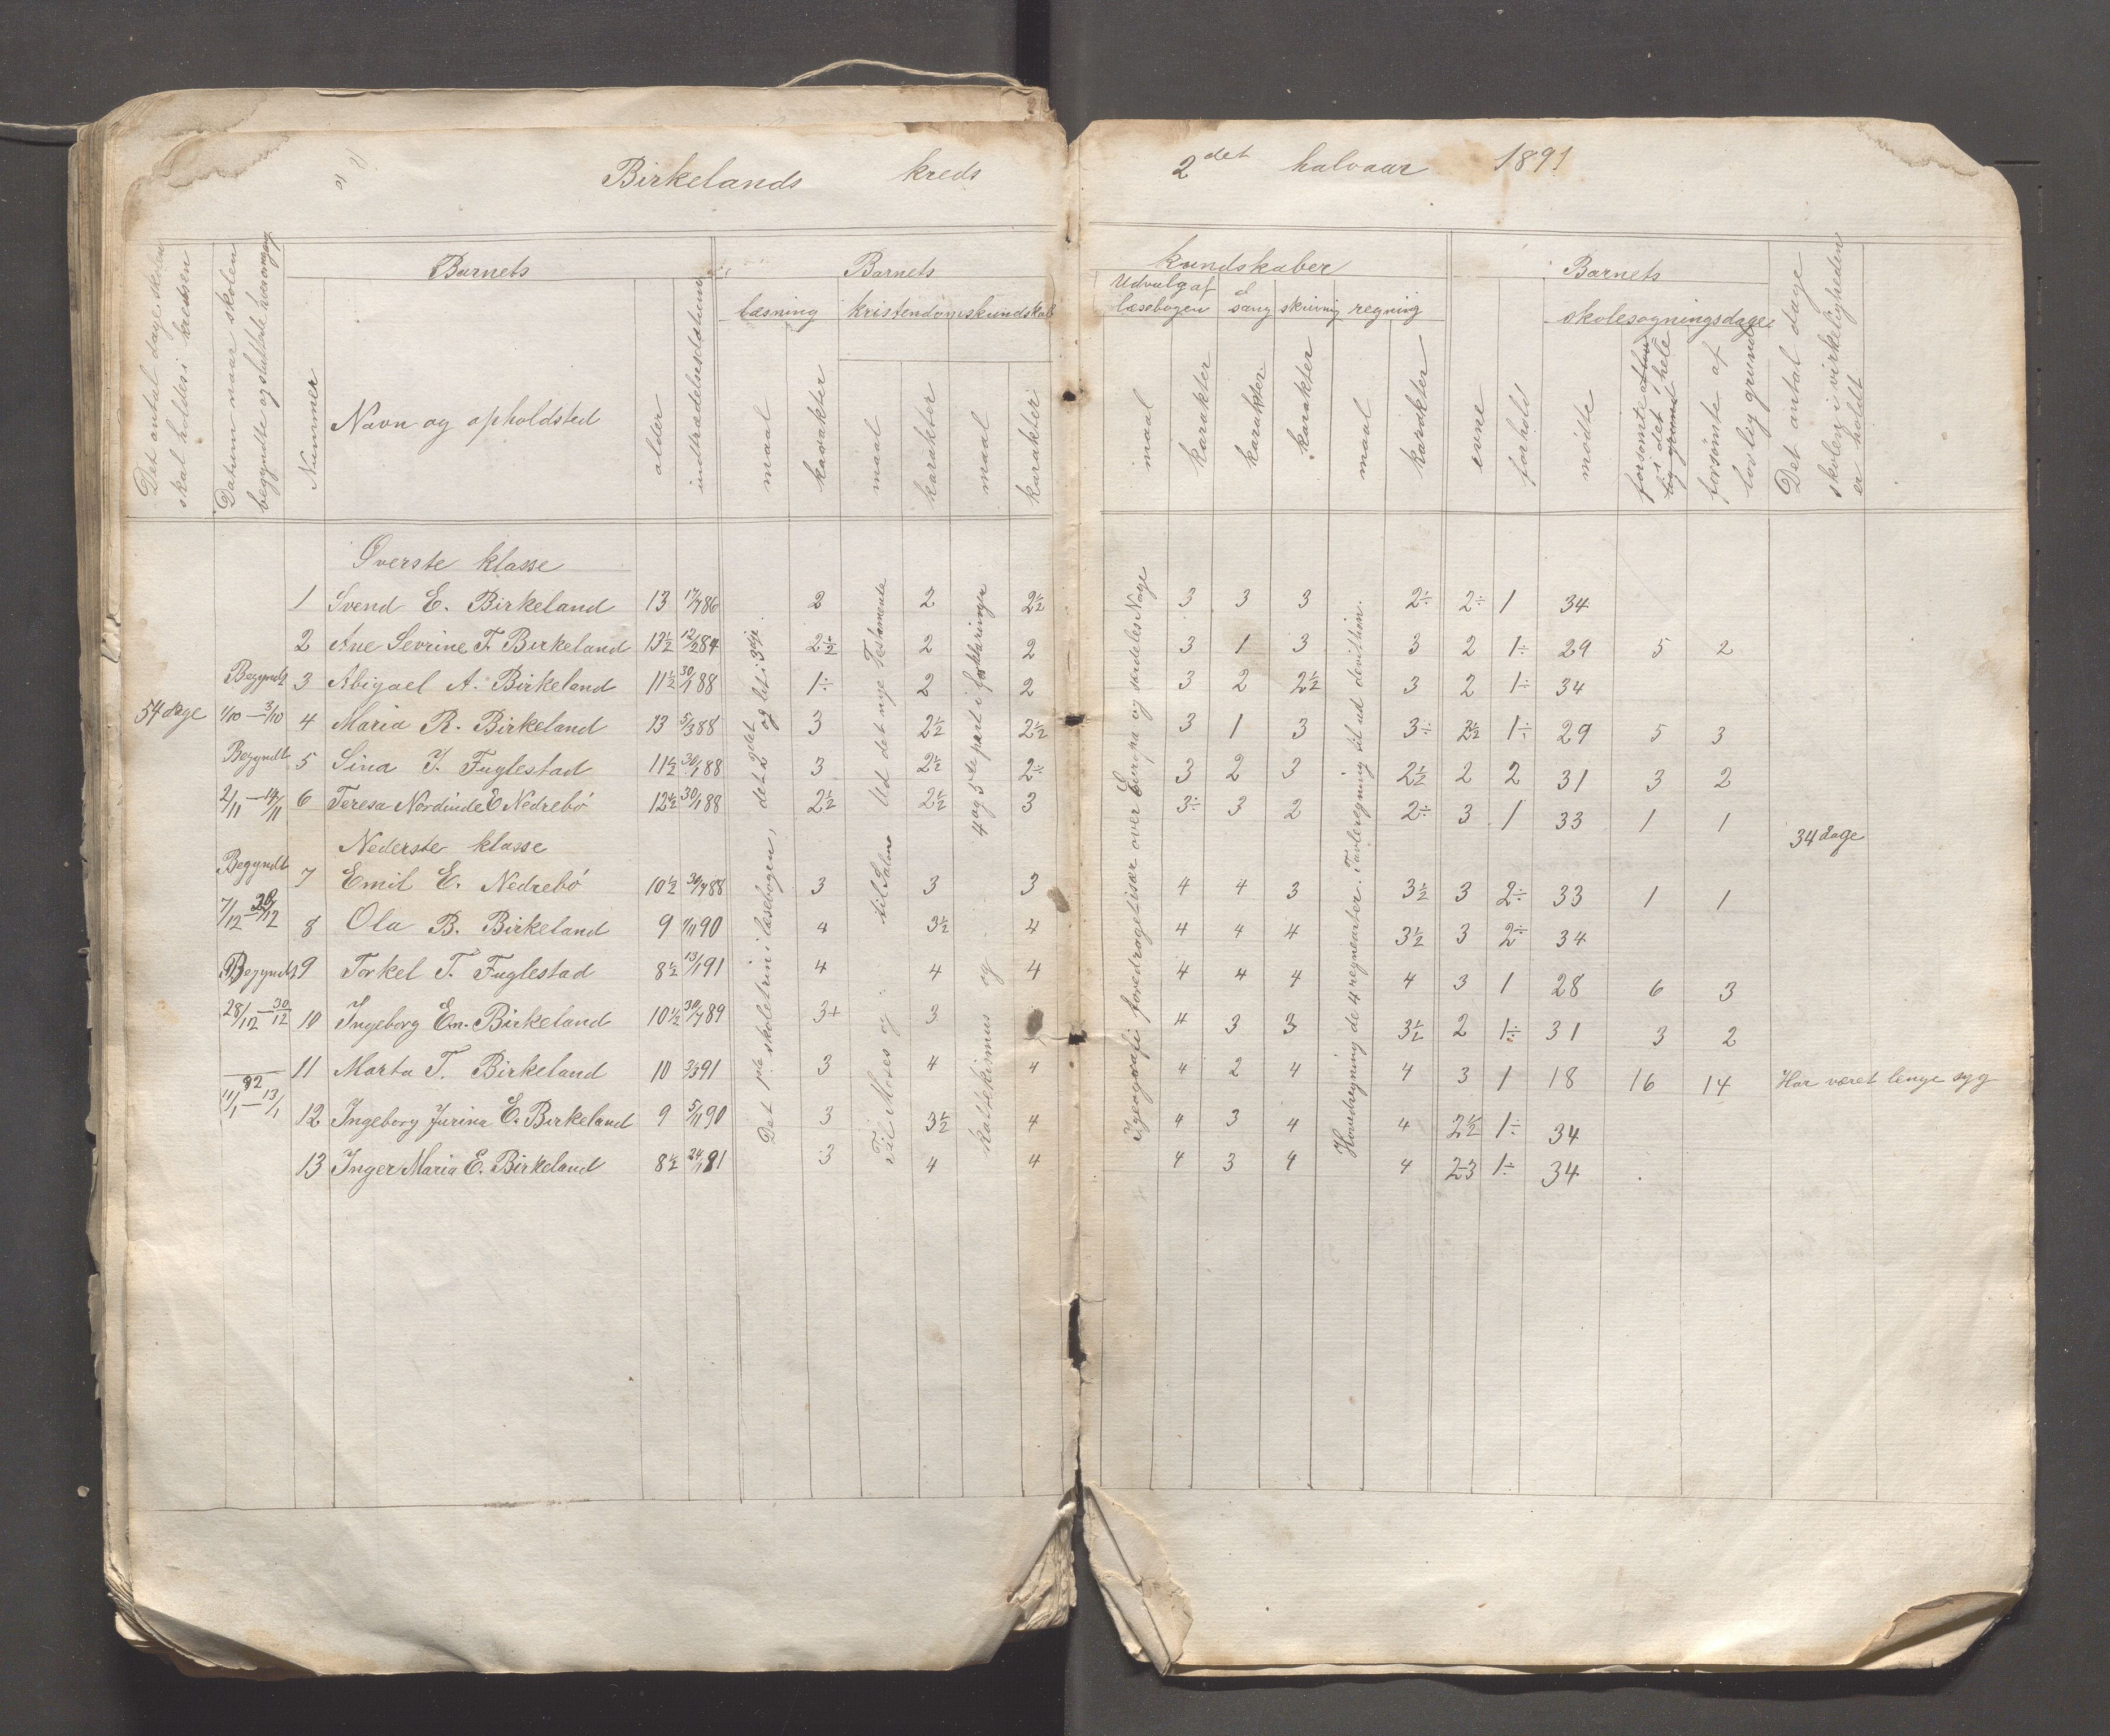 Birkelands kreds 2det halvaar 1891
Det antal dage skolen skal holdes i kredsen
Datum naar skolen begyndte og sluttede hver omgang
Nummer
Barnets
Navn og opholdsted
alder
indtrædelsesdatum
Barnets kundskaber
læsning
maal
karakter
kristendomskundskab
maal
karakter
maal
karakter
Udvalg af læsebogen
maal
karakter
sang
karakter
skrivning
karakter
regning
maal
karakter
evne
forhold
Barnets skolesøgningsdage
mødte
forsømte i det hele
forsømte af lovlig grund
Det antal dage skolen i virkeligheden er holdt
Øverste klasse
1 Svend E. Birkeland 13 17/7 86 2 2 2½ 3 3 3 2÷ 2÷ 1 34
2 Ane Sevrine T. Birkeland 13½ 12/2 84 2½ 2 2 3 1 3 3 2 1÷ 29 5 2
Begyndt 3 Abigael A. Birkeland 11½ 30/1 88 1÷ 2 2 3 2 2½ 3 2 1÷ 34
54 dage 1/10 – 3/10 4 Maria R. Birkeland 13 5/3 88 3 2½ 2½ 3 1 3 3÷ 2½ 1÷ 29 5 3
Begyndt 5 Sina J. Fuglestad 11½ 30/1 88 3 2½ 2÷ 3 2 3 2½ 2 2 31 3 2
2/11 – 14/11 6 Teresa Nordinde E Nedrebö 12½ 30/1 88 2½ 2½ 3 3÷ 3 2 2÷ 3 1 33 1 1
34 dage
Nederste klasse
Begyndt 7 Emil E. Nedrebö 10½ 30/7 88 3 3 3 4 4 3 3½ 3 2÷ 33 1 1
7/12 – 20/12 8 Ola B. Birkeland 9 1/11 90 4 3½ 4 4 4 4 3½ 3 2÷ 34
Begyndt 9 Torkel T. Fuglestad 8½ 13/1 91 4 4 4 4 4 4 4 3 1 28 6 3
28/12 – 30/12 10 Ingeborg Em. Birkeland 10½ 30/7 89 3+ 3 4 3 3 3½ 2 1÷ 31 3 2
11 Marta T. Birkeland 10 3/3 91 3 4 4 4 2 4 4 3 1 18 16 14 Har været lenge syg
92 11/1 – 13/1 12 Ingeborg Jurina E. Birkeland 9 5/11 90 3 3½ 4 4 3 4 4 2½ 1÷ 34
13 Inger Maria E. Birkeland 8½ 24/1 91 3 4 4 4 3 4 4 2-3 1÷ 34
Det 1ste skoletrin i læsebogen, det 2det og lit i 3die.
Til Moses og til Salme
Ud det nye Testamente
katekismus og 4 og 5te part i forklaringen
I geografi foredraget især over Europa og særdeles Norge
Hovedregning de 4 regnearter. Tavleregning til ud devisjon.